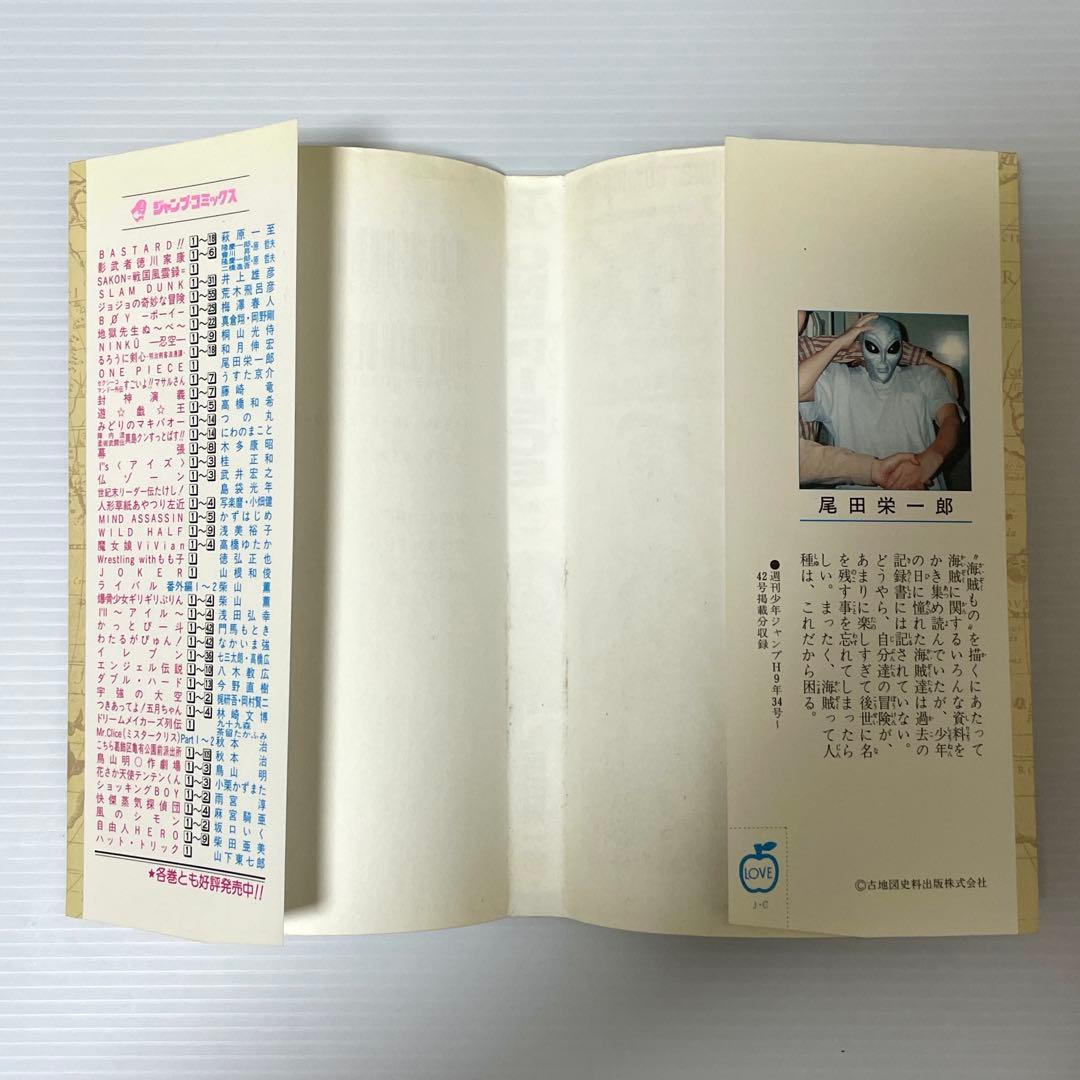 ジャンプ・コミックス
BASTARD!! 1〜18 萩原一至
影武者徳川家康 1〜6 隆慶一郎・原哲夫 會川昇
SAKON=戦国風雲録= 1 隆慶一郎・原哲夫 二橋進吾
SLAM DUNK 1〜31 井上雄彦
ジョジョの奇妙な冒険 1〜53 荒木飛呂彦
BØY ―ボーイ― 1〜25 梅澤春人
地獄先生ぬ〜べ〜 1〜22 真倉翔・岡野剛
NINKŪ ―忍空― 1〜9 桐山光侍
るろうに剣心・明治剣客浪漫譚・ 1〜16 和月伸宏
ONE PIECE 1 尾田栄一郎
セクシーコマンドー外伝すごいよ!!マサルさん 1〜7 うすた京介
封神演義 1〜7 藤崎竜
遊☆戯☆王 1〜5 高橋和希
みどりのマキバオー 1〜14 つの丸
陣内流柔術武闘伝真島クンすっとばす!! 1〜14 にわのまこと
幕張 1〜8 木多康昭
I's〈アイズ〉 1〜3 桂正和
仏ゾーン 1〜3 武井宏之
世紀末リーダー伝たけし! 1 島袋光年
人形草紙あやつり左近 1〜4 写楽麿・小畑健
MIND ASSASSIN 1〜5 かずはじめ
WILD HALF 1〜9 浅美裕子
魔女娘ViVian 1〜4 高橋ゆたか
Wrestling withもも子 1 徳弘正也
JOKER 1 山根和俊
ライバル 番外編1〜2 柴山薫
爆骨少女ギリギリぷりん 1〜4 柴山薫
I'll〜アイル〜 1〜4 浅田弘幸
かっとび一斗 1〜42 門馬もとき
わたるがぴゅん! 1〜42 なかいま強
イレブン 1〜39 七三太郎・高橋広
エンジェル伝説 1〜10 八木教広
ダブル・ハード 1〜13 今野直樹
宇強の大空 1〜2 梶研吾・岡村賢二
つきあってよ!五月ちゃん 1〜4 林崎文博
ドリームメイカーズ列伝 1 九十九森 茶留たかふみ
Mr.Clice(ミスタークリス) Part1〜2 秋本治
こちら葛飾区亀有公園前派出所 1〜103 秋本治
鳥山明○作劇場 1〜3 鳥山明
花さか天使テンテンくん 1〜3 小栗かずまた
ショッキングBOY 1〜2 雨宮淳
快傑蒸気探偵団 1〜4 麻宮騎亜
風のシモン 1〜2 坂口いく
自由人HERO 1〜9 柴田亜美
ハット・トリック 1 山下東七郎
★各巻とも好評発売中!!
尾田栄一郎
"海賊もの"を描くにあたって
海賊に関するいろんな資料を
かき集め読んでいたが、少年
の日に憧れた海賊達は過去の
記録書には記されていない。
どうやら、自分達の冒険が、
あまりに楽しすぎて後世に名
を残す事を忘れてしまったら
しい。まったく、海賊って人
種は、これだから困る。
●週刊少年ジャンプH9年34号〜
42号掲載分収録
LOVE
J・C
©古地図史料出版株式会社